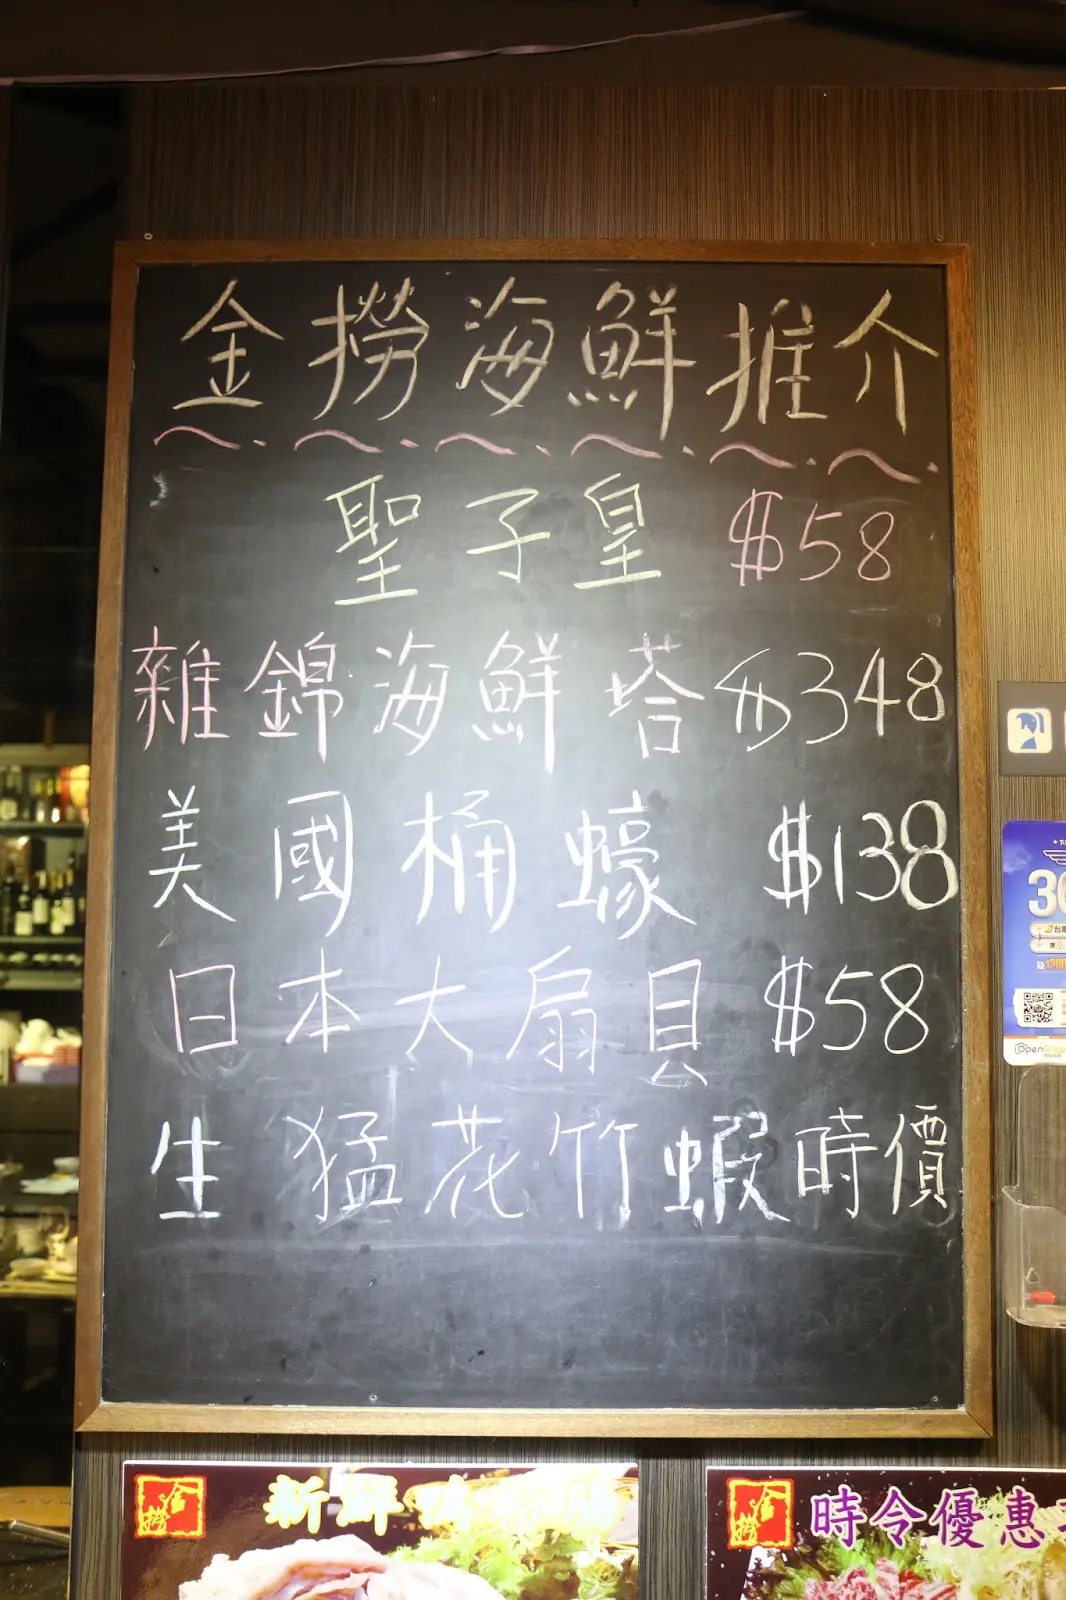 金撈海鮮推介
聖子皇 $58
雜錦海鮮塔 $348
美國桶蠔 $138
日本大扇貝 $58
生猛花竹蝦 時價
金撈
新鮮
金撈
時令優惠